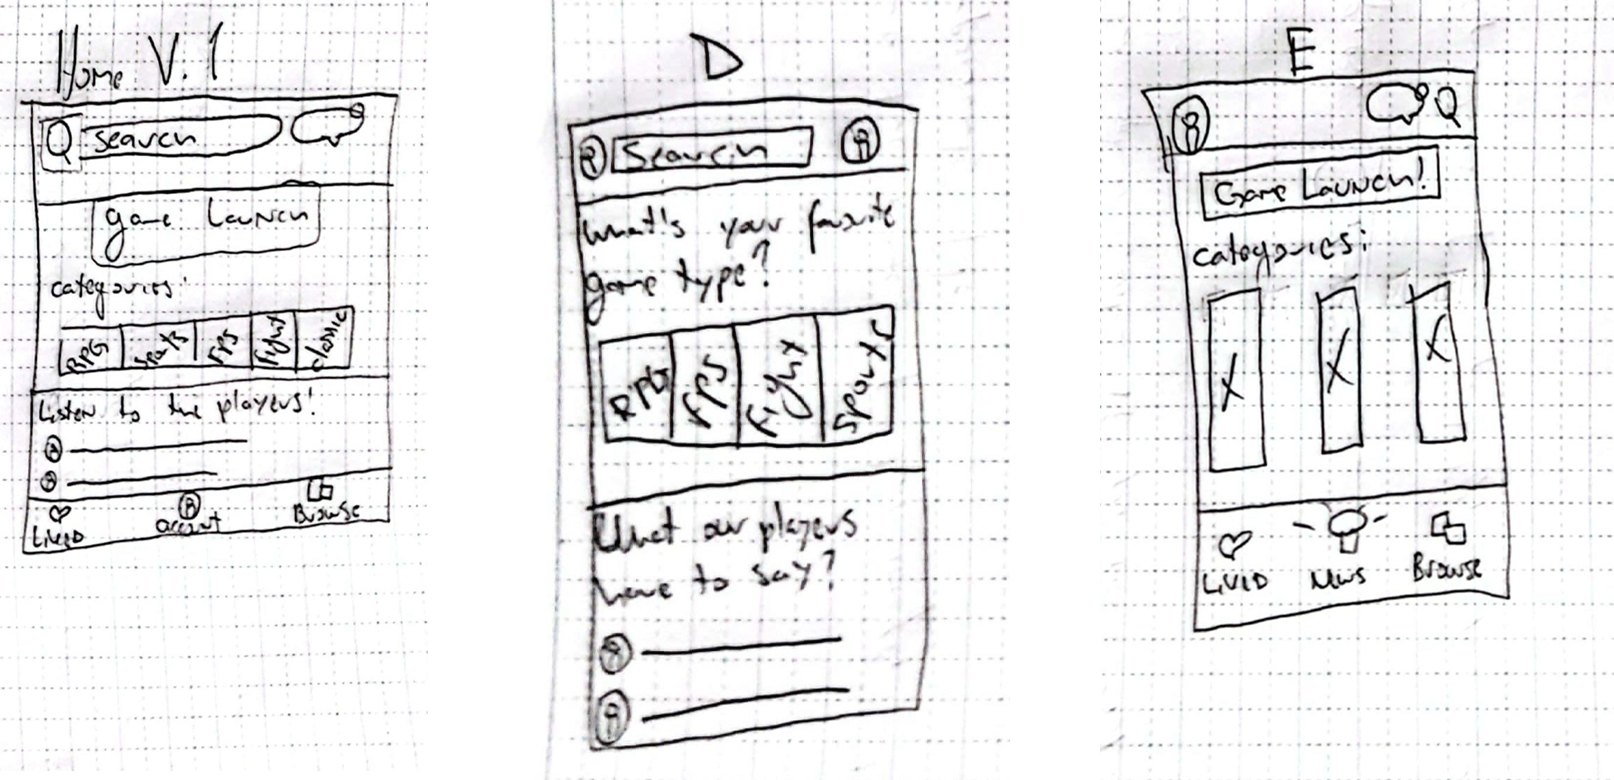 Home V. 1
search
game Launch
categories:
RPG
Sports
FPS
Fight
classic
Listen to the players!
Liked
account
Browse
D
Search
What's your favorite
game type?
RPG
FPS
Fight
Sports
What our players
have to say?
E
Game Launch!
categories:
X
X
X
Liked
News
Browse